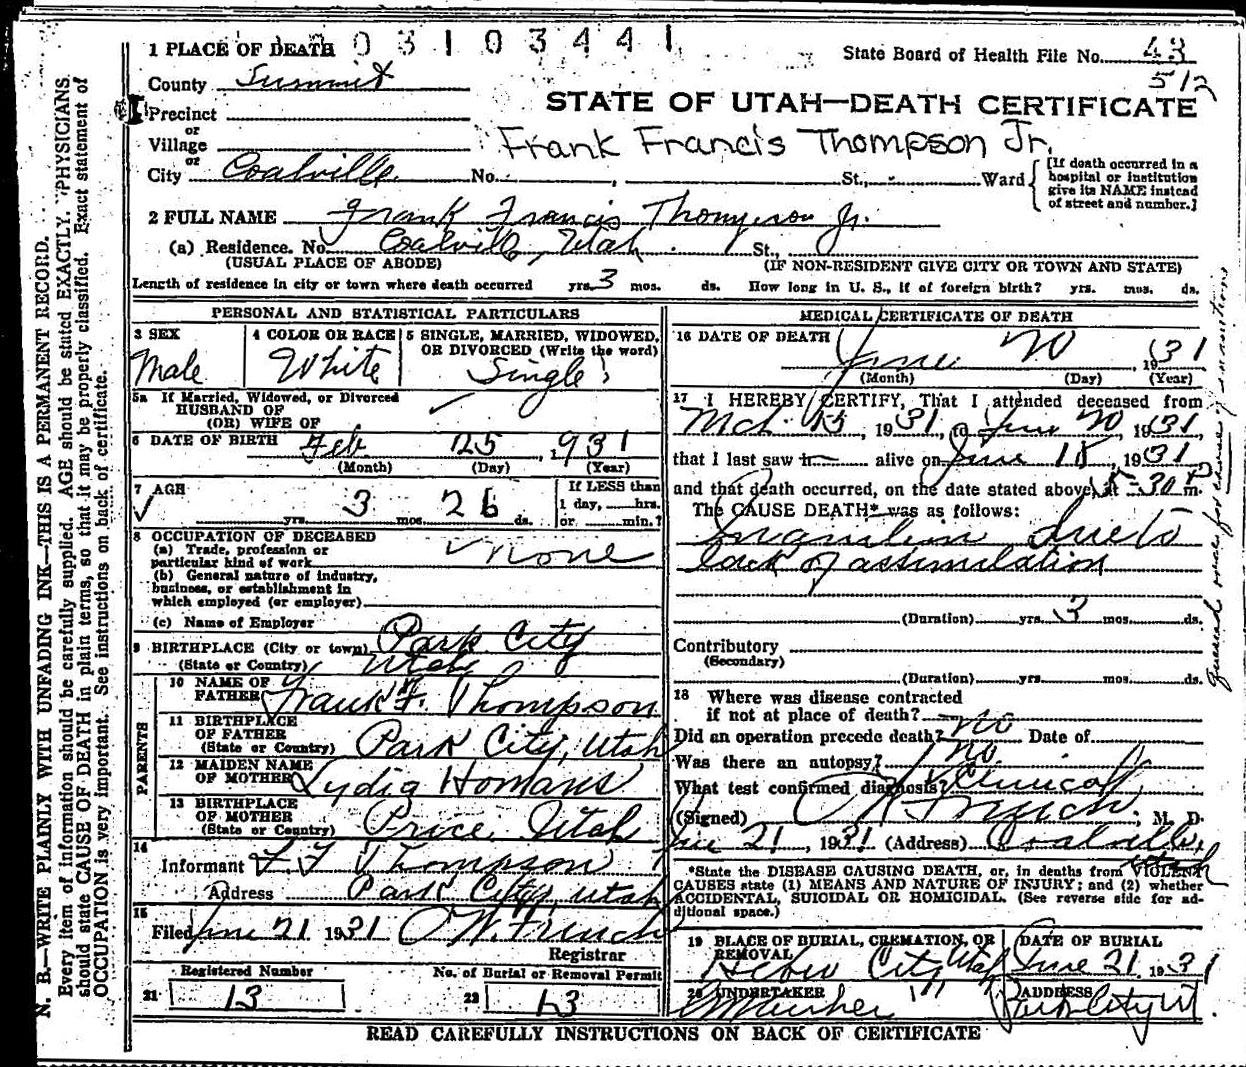 0 3 1 0 3 4 4 1
1 PLACE OF DEATH
State Board of Health File No. 43
512
County Summit
STATE OF UTAH—DEATH CERTIFICATE
Precinct
or
Village
Frank Francis Thompson Jr.
or
City Coalville No. St., Ward
[If death occurred in a hospital or institution give its NAME instead of street and number.]
2 FULL NAME Frank Francis Thompson Jr.
(a) Residence. No. Coalville, Utah St.,
(USUAL PLACE OF ABODE) (IF NON-RESIDENT GIVE CITY OR TOWN AND STATE)
Length of residence in city or town where death occurred yrs. 3 mos. ds. How long in U. S., if of foreign birth? yrs. mos. ds.
PERSONAL AND STATISTICAL PARTICULARS
3 SEX
Male
4 COLOR OR RACE
White
5 SINGLE, MARRIED, WIDOWED, OR DIVORCED (Write the word)
Single
5a If Married, Widowed, or Divorced
HUSBAND OF
(OR) WIFE OF
6 DATE OF BIRTH Feb. 25, 1931
(Month) (Day) (Year)
7 AGE
yrs. 3 mos. 26 ds.
If LESS than
1 day, hrs.
or min.?
8 OCCUPATION OF DECEASED
(a) Trade, profession or
particular kind of work none
(b) General nature of industry,
business, or establishment in
which employed (or employer)
(c) Name of Employer
9 BIRTHPLACE (City or town) Park City
(State or Country) Utah
PARENTS
10 NAME OF FATHER Frank F. Thompson
11 BIRTHPLACE OF FATHER
(State or Country) Park City, Utah
12 MAIDEN NAME OF MOTHER Lydia Homans
13 BIRTHPLACE OF MOTHER
(State or Country) Price, Utah
14
Informant F. F. Thompson
Address Park City, Utah
15
Filed June 21 1931 O W. French
Registrar
Registered Number
21 13
No. of Burial or Removal Permit
22 13
MEDICAL CERTIFICATE OF DEATH
16 DATE OF DEATH
June 20, 1931
(Month) (Day) (Year)
17 I HEREBY CERTIFY, That I attended deceased from
Mch. 15, 1931, to June 20, 1931
that I last saw h alive on June 18, 1931
and that death occurred, on the date stated above, at 5-30 P m.
The CAUSE DEATH* was as follows:
Inanition due to
lack of assimilation
(Duration) yrs. 3 mos. ds.
Contributory
(Secondary)
(Duration) yrs. mos. ds.
18 Where was disease contracted
if not at place of death? no
Did an operation precede death? no Date of
Was there an autopsy?
What test confirmed diagnosis? Clinical
(Signed) O W French, M. D.
June 21, 1931 (Address) Coalville,
Utah
*State the DISEASE CAUSING DEATH, or, in deaths from VIOLENT
CAUSES state (1) MEANS AND NATURE OF INJURY; and (2) whether
ACCIDENTAL, SUICIDAL OR HOMICIDAL. (See reverse side for ad-
ditional space.)
19 PLACE OF BURIAL, CREMATION, OR REMOVAL
Heber City Utah
DATE OF BURIAL
June 21 1931
20 UNDERTAKER
ADDRESS
Park City Ut.
READ CAREFULLY INSTRUCTIONS ON BACK OF CERTIFICATE
N. B.—WRITE PLAINLY WITH UNFADING INK—THIS IS A PERMANENT RECORD.
Every item of information should be carefully supplied. AGE should be stated EXACTLY. PHYSICIANS
should state CAUSE OF DEATH in plain terms, so that it may be properly classified. Exact statement of
OCCUPATION is very important. See instructions on back of certificate.